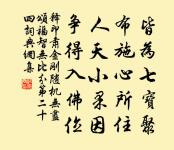 皆為七寶聚
布施心所住
人天小果因
爭得入佛位
釋印肅金剛隨机無盡
頌福智無比分第二十
四詞典網喜